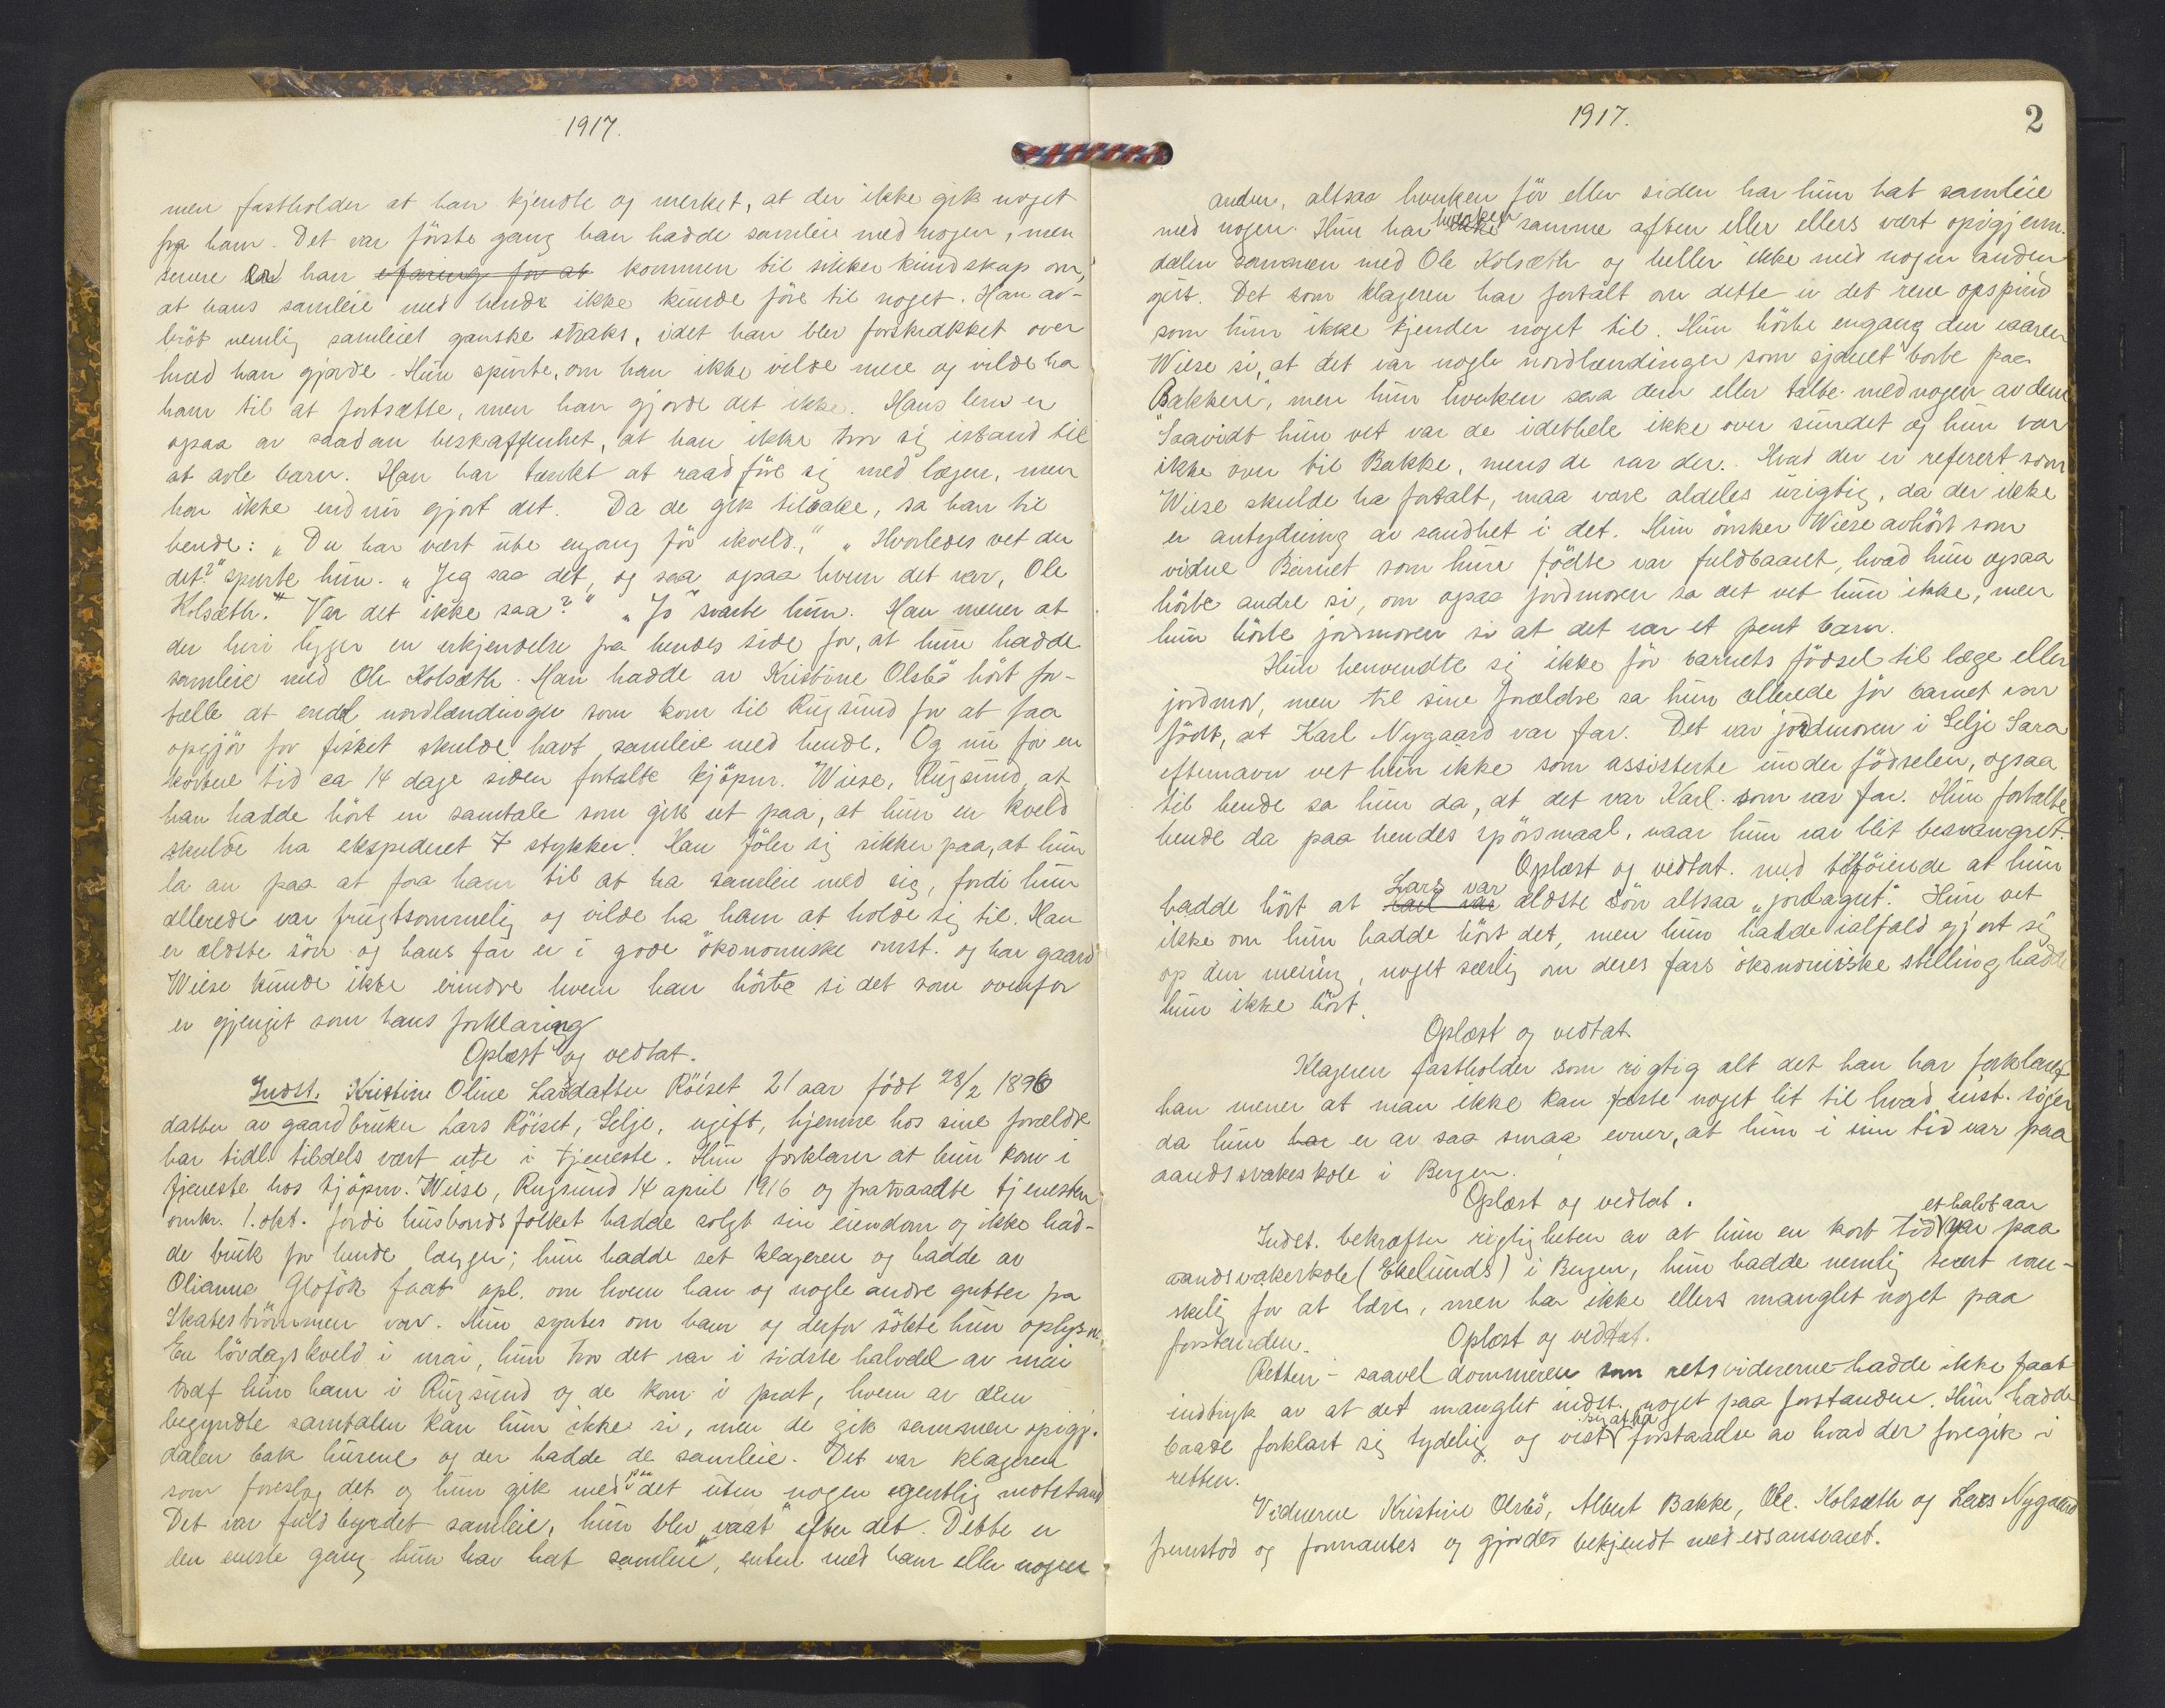 1917.
men fastholder at han kjendte og merket, at der ikke gik noget
fra ham. Det var første gang han hadde samleie med nogen, men
senere er han kommen til sikker kundskap om,
at hans samleie med hende ikke kunde føre til noget. Han av-
brøt nemlig samleiet ganske straks, idet han blev forskrækket over
hvad han gjorde. Hun spurte, om han ikke vilde mere og vilde ha
ham til at fortsætte, men han gjorde det ikke. Hans lem er
ogsaa av saadan beskaffenhet, at han ikke tror sig istand til
at avle barn. Han har tænkt at raadføre sig med lægen, men
har ikke endnu gjort det. Da de gik tilbake, sa han til
hende: „Du har vært ute engang før ikveld." „Hvorledes vet du
det?" spurte hun. „Jeg saa det, og saa ogsaa hvem det var, Ole
Kolsæth." Var det ikke saa?" „Jo" svarte hun. Han mener at
der heri ligger en erkjendelse fra hendes side for, at hun hadde
samleie med Ole Kolsæth. Han hadde av Kristine Olsbø hørt for-
tælle at endel nordlændinger som kom til Rugsund for at faa
opgjør for fisket skulde havt samleie med hende. Og nu for en
kortere tid ca 14 dage siden fortalte kjøpm. Wiese, Rugsund, at
han hadde hørt en samtale som gik ut paa, at hun en kveld
skulde ha ekspederet 7 stykker. Han føler sig sikker paa, at hun
la an paa at faa ham til at ha samleie med sig, fordi hun
allerede var frugtsommelig og vilde ha ham at holde sig til. Han
er ældste søn og hans far er i gode økonomiske omst. og har gaard
Wiese kunde ikke erindre hvem han hørte si det som ovenfor
er gjengit som hans forklaring
Oplæst og vedtat.
Indst. Kristine Oline Larsdatter Røiset 21 aar født 28/2 1896
datter av gaardbruker Lars Røiset, Selje, ugift, hjemme hos sine forældre
har tidl. tildels vært ute i tjeneste. Hun forklarer at hun kom i
tjeneste hos kjøpm. Wiese, Rugsund 14 april 1916 og fratraadte tjenesten
omkr. 1. okt. fordi husbondsfolket hadde solgt sin eiendom og ikke had-
de bruk for hende længer; hun hadde set klageren og hadde av
Olianna Gloføk faat opl. om hvem han og nogle andre gutter fra
Skatestrømmen var. Hun syntes om ham og derfor søkte hun oplysn.
En lørdagskveld i mai, hun tror det var i sidste halvdel av mai
traf hun ham i Rugsund og de kom i prat, hvem av dem
begyndte samtalen kan hun ikke si, men de gik sammen opigj.
dalen bak husene og der hadde de samleie. Det var klageren
som foreslog det og hun gik med paa det uten nogen egentlig motstand
Det var fuldbyrdet samleie, hun blev „vaat" efter det. Dette er
den eneste gang hun har hat samleie, enten med ham eller nogen
1917.
2
anden, altsaa hverken før eller siden har hun hat samleie
med nogen. Hun har hverken samme aften eller ellers vært opigjenn.
dalen sammen med Ole Kolsæth og heller ikke med nogen anden
gut. Det som klageren har fortalt om dette er det rene opspind
som hun ikke kjender noget til. Hun hørte engang den
Wiese si, at det var nogle nordlændinger som sjauet borte paa
Bakken", men hun hverken saa dem eller talte med nogen av dem
Saavidt hun vet var de idethele ikke over sundet og hun var
ikke over til Bakke, mens de var der. Hvad der er referert som
Wiese skulde ha fortalt, maa være aldeles urigtig, da der ikke
er antydning av sandhet i det. Hun ønsker Wiese avhørt som
vidne Barnet som hun fødte var fuldbaaret, hvad hun ogsaa
hørte andre si, om ogsaa jordmoren sa det vet hun ikke, men
hun hørte jordmoren si at det var et pent barn.
Hun henvendte sig ikke før barnets fødsel til læge eller
jordmor, men til sine forældre sa hun allerede før barnet var
født, at Karl Nygaard var far. Det var jordmoren i Selje Sara
efternavn vet hun ikke som assisterte under fødselen, ogsaa
til hende sa hun da, at det var Karl som var far. Hun fortalte
hende da paa hendes spørsmaal, naar hun var blit besvangret.
Oplæst og vedtat. med tilføiende at hun
hadde hørt at Lars var ældste søn altsaa „jordagut". Hun vet
ikke om hun hadde hørt det, men hun hadde ialfald gjort sig
op den mening, noget særlig om deres fars økonomiske stilling hadde
hun ikke hørt.
Oplæst og vedtat
Klageren fastholder som rigtig alt det han har forklaret
han mener at man ikke kan fæste noget lit til hvad indst. siger
da hun er av saa smaa evner, at hun i sin tid var paa
aandssvakeskole i Bergen.
Oplæst og vedtat.
Indst. bekræfter rigtigheten av at hun en kort tid et halvt aar var paa
aandsvakeskole (Ekelunds) i Bergen, hun hadde nemlig svært van-
skelig for at lære, men har ikke ellers manglet noget paa
forstanden. Oplæst og vedtat.
Retten – saavel dommeren som retsvidnerne hadde ikke faat
indtryk av at det manglet indst. noget paa forstanden. Hun hadde
baade forklart sig tydelig og vist sig at ha forstaaelse av hvad der foregik i
retten.
Vidnerne Kristine Olsbø, Albert Bakke, Ole Kolsæth og Lars Nygaard
fremstod og formantes og gjordes bekjendt med edsansvaret.